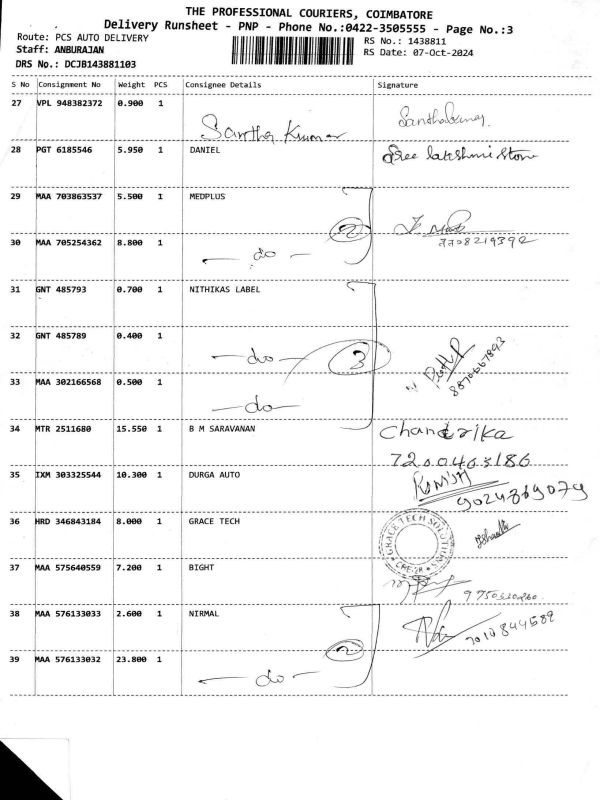 THE PROFESSIONAL COURIERS, COIMBATORE
Delivery Runsheet - PNP - Phone No.:0422-3505555 - Page No.:3
Route: PCS AUTO DELIVERY
RS No.: 1438811
Staff: ANBURAJAN
RS Date: 07-Oct-2024
DRS No.: DCJB143881103
S No Consignment No Weight PCS Consignee Details Signature
27 VPL 948382372 0.900 1 Santha Kumar Santhakumar
28 PGT 6185546 5.950 1 DANIEL Sree lakshmi store
29 MAA 703863537 5.500 1 MEDPLUS
2
7708219392
30 MAA 705254362 8.800 1 — do —
31 GNT 485793 0.700 1 NITHIKAS LABEL
32 GNT 485789 0.400 1 — do — 3 8870667893
33 MAA 302166568 0.500 1 — do —
34 MTR 2511680 15.550 1 B M SARAVANAN Chandrika
7200463186
35 IXM 303325544 10.300 1 DURGA AUTO
9024869079
36 HRD 346843184 8.000 1 GRACE TECH GRACE TECH SOLUTIONS
37 MAA 575640559 7.200 1 BIGHT
38 MAA 576133033 2.600 1 NIRMAL 7010844588
2
39 MAA 576133032 23.800 1 — do —